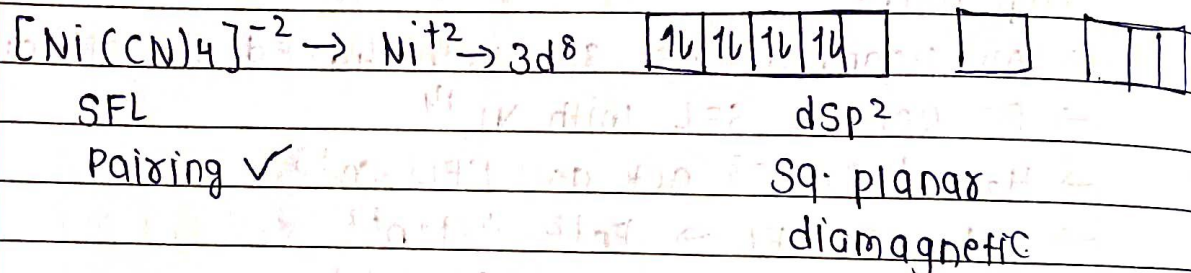 [Ni(CN)4]⁻² → Ni⁺² → 3d⁸ 1l 1l 1l 1l
SFL dsp²
Pairing ✓ Sq. planar
diamagnetic